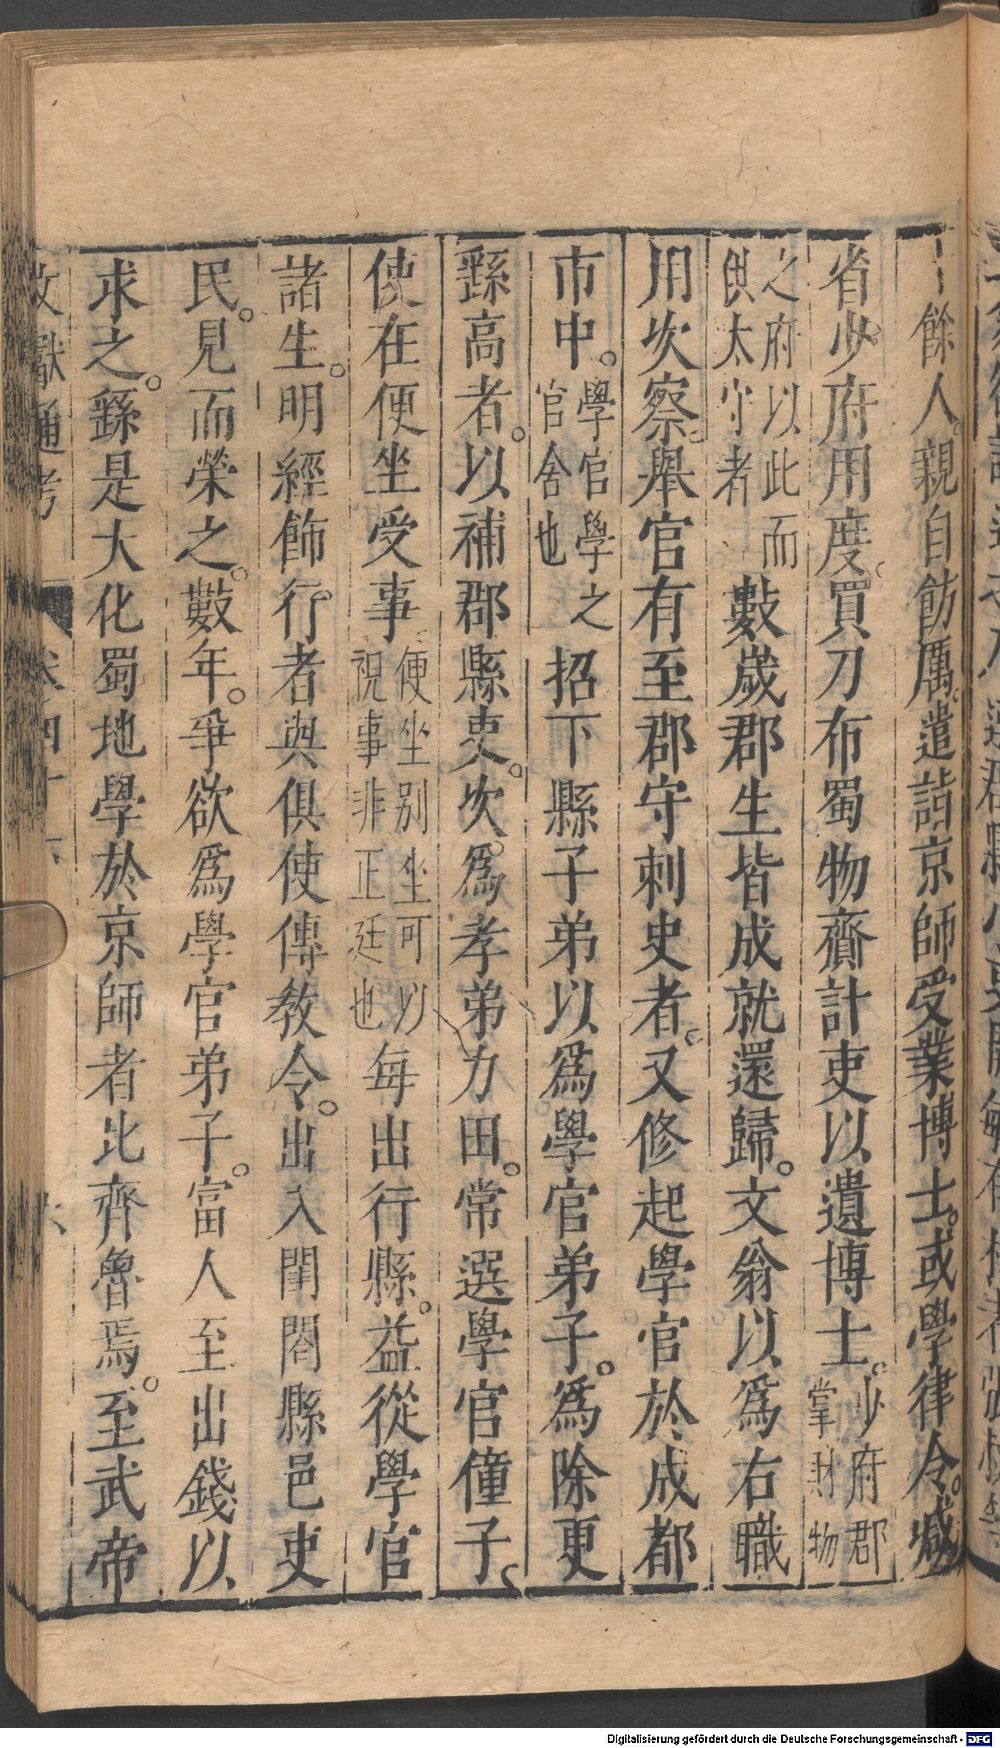 十餘人。親自飭厲。遣詣京師。受業博士。或學律令。减
省少府用度。買刀布蜀物齎計吏以遺博士。少府郡掌財物
之府以此而供太守者數歲郡生皆成就還歸。文翁以爲右職
用次察舉官有至郡守刺史者。又修起學官於成都
市中。學官學之官舍也招下縣子弟以爲學官弟子。爲除更
繇高者。以補郡縣吏。次爲孝弟力田。常選學官僮子。
使在便坐受事。便坐別坐可以視事非正廷也每出行縣。益從學官
諸生。明經飾行者與俱使傳教令。出入閨閤縣邑吏
民。見而榮之。數年。爭欲爲學官弟子。富人至出錢以
求之。繇是大化蜀地學於京師者比齊魯焉。至武帝
文獻通考 卷四十六
Digitalisierung gefördert durch die Deutsche Forschungsgemeinschaft - DFG